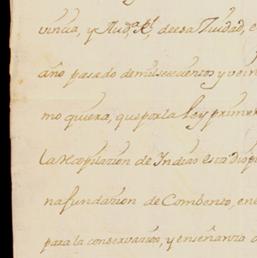 vincia, y Aud.ª R.l de esa Ciudad, e
año pasado de mil setecientos y vein
mo quiera, que por la Ley primer
la Recopilacion de Indias esta disp
na fundacion de Combento, en e
para la conservacion, y enseñanza d